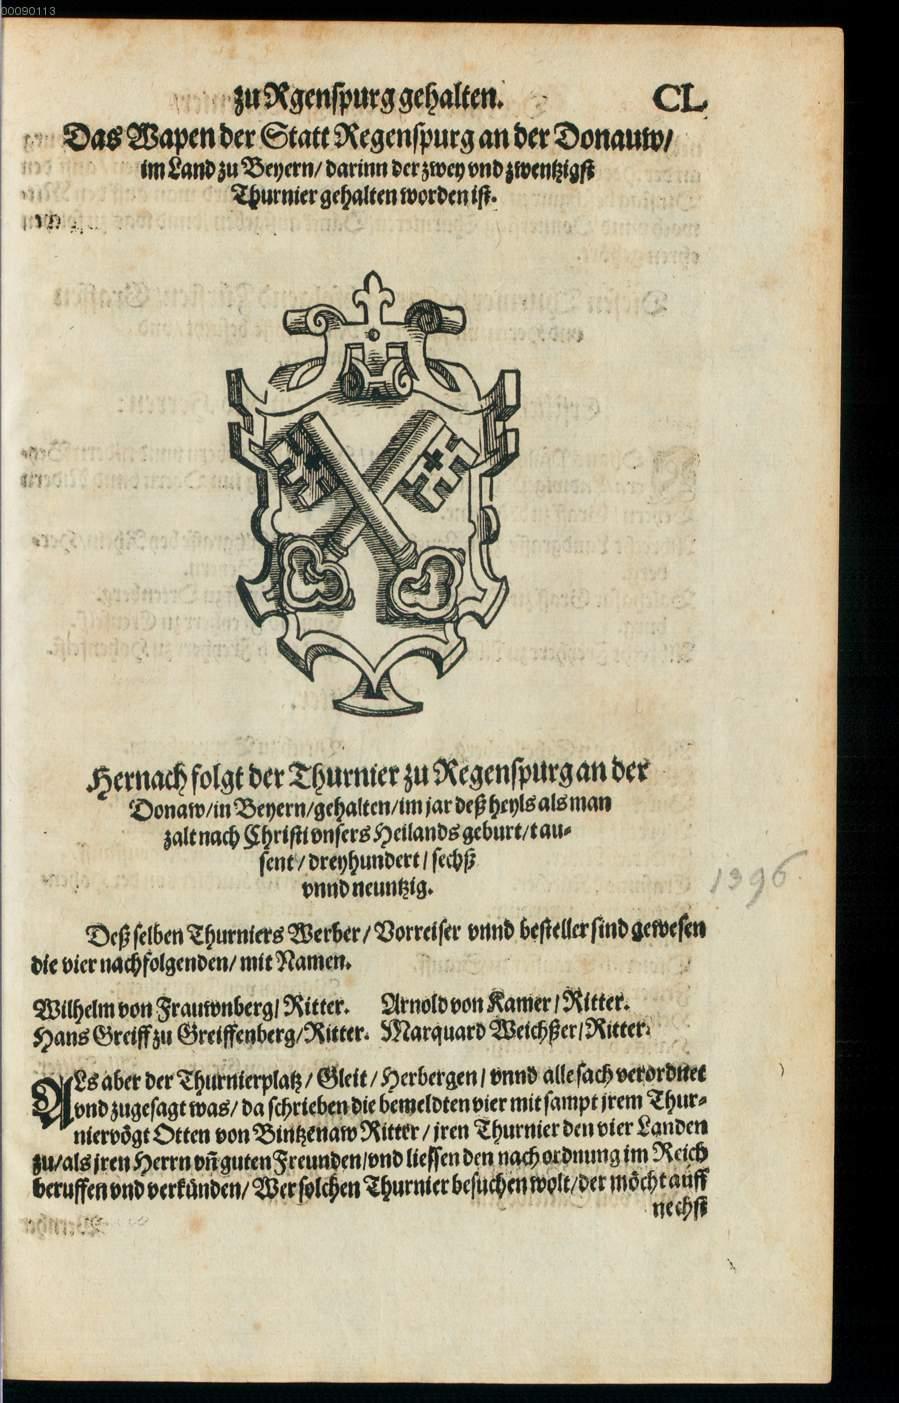 00090113
zu Rgenspurg gehalten. CL
Das Wapen der Statt Regenspurg an der Donauw/
im Land zu Beyern/ darinn der zwey vnd zwentzigst
Thurnier gehalten worden ist.
Hernach folgt der Thurnier zu Regenspurg an der
Donaw/in Beyern/gehalten/im jar deß heyls als man
zalt nach Christi vnsers Heilands geburt/tau-
sent/dreyhundert/sechß
vnnd neuntzig.
1396
Deß selben Thurniers Werber/ Vorreiser vnnd besteller sind gewesen
die vier nachfolgenden/ mit Namen.
Wilhelm von Frauwnberg/ Ritter. Arnold von Kamer/Ritter.
Hans Greiff zu Greiffenberg/Ritter. Marquard Weichßer/Ritter.
ALs aber der Thurnierplatz/ Gleit/ Herbergen/ vnnd alle sach verordnet
vnd zugesagt was/ da schrieben die bemeldten vier mit sampt jrem Thur-
niervögt Otten von Bintzenaw Ritter/ jren Thurnier den vier Landen
zu/als jren Herrn vñ guten Freunden/vnd liessen den nach ordnung im Reich
beruffen vnd verkünden/ Wer solchen Thurnier besuchen wolt/der möcht auff
nechst